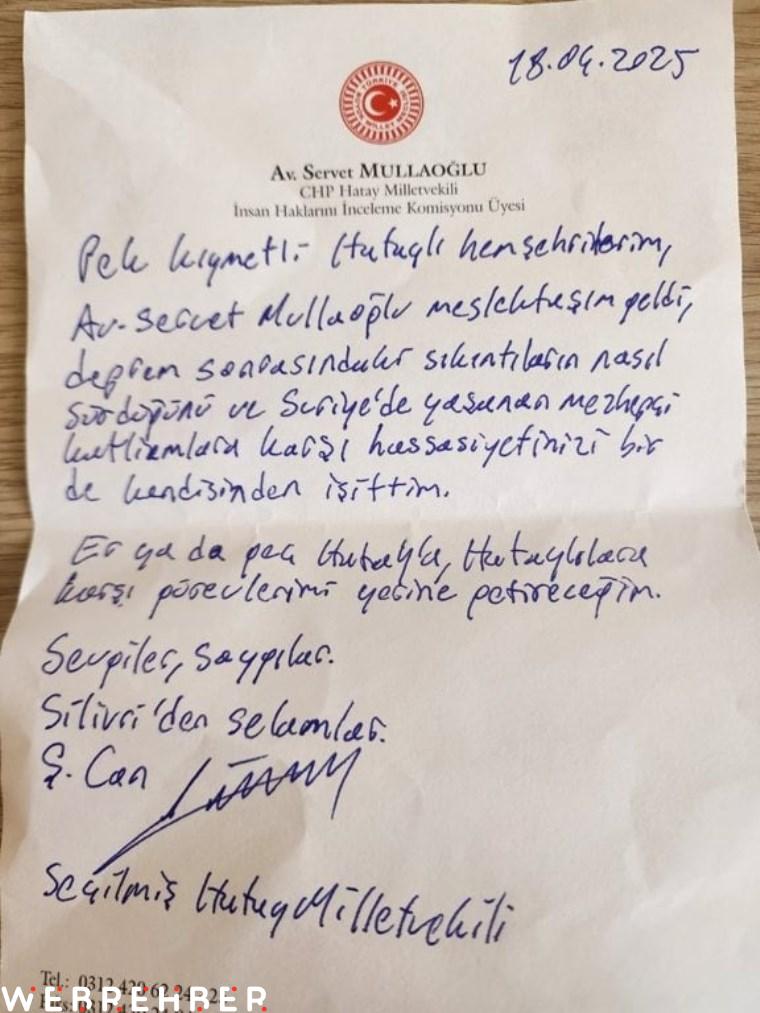 18.04.2025
TÜRKİYE BÜYÜK MİLLET MECLİSİ
Av. Servet MULLAOĞLU
CHP Hatay Milletvekili
İnsan Haklarını İnceleme Komisyonu Üyesi
Pek kıymetli Hataylı hemşehrilerim,
Av. Servet Mullaoğlu meslektaşım geldi,
deprem sonrasındaki sıkıntıların nasıl
sürdüğünü ve Suriye'de yaşanan mezhepçi
katliamlara karşı hassasiyetinizi bir
de kendisinden işittim.
Er ya da geç Hatay'a, Hataylılara
karşı görevlerimi yerine getireceğim.
Sevgiler, saygılar.
Silivri'den selamlar.
Ş. Can
Seçilmiş Hatay Milletvekili
Tel.: 0312 420 62
WEBREHBER